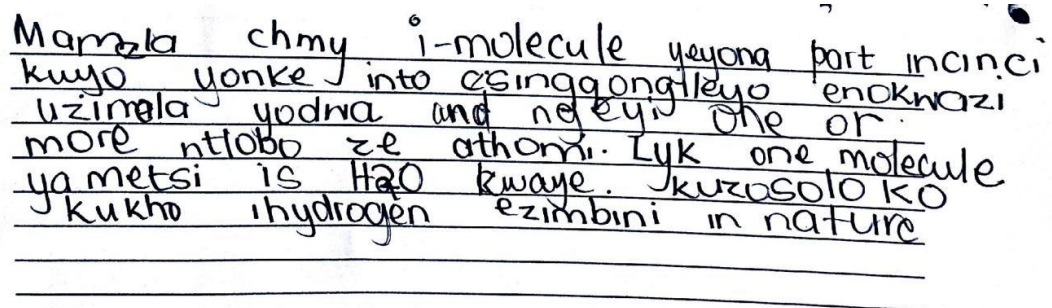 Mamela chmy i-molecule yeyona part incinci
kuyo yonke into esingqongileyo enokwazi
uzimela yodwa and ngeyi one or
more ntlobo ze athomi. Lyk one molecule
ya metsi is H2O kwaye. kuzosoloko
kukho ihydrogen ezimbini in nature